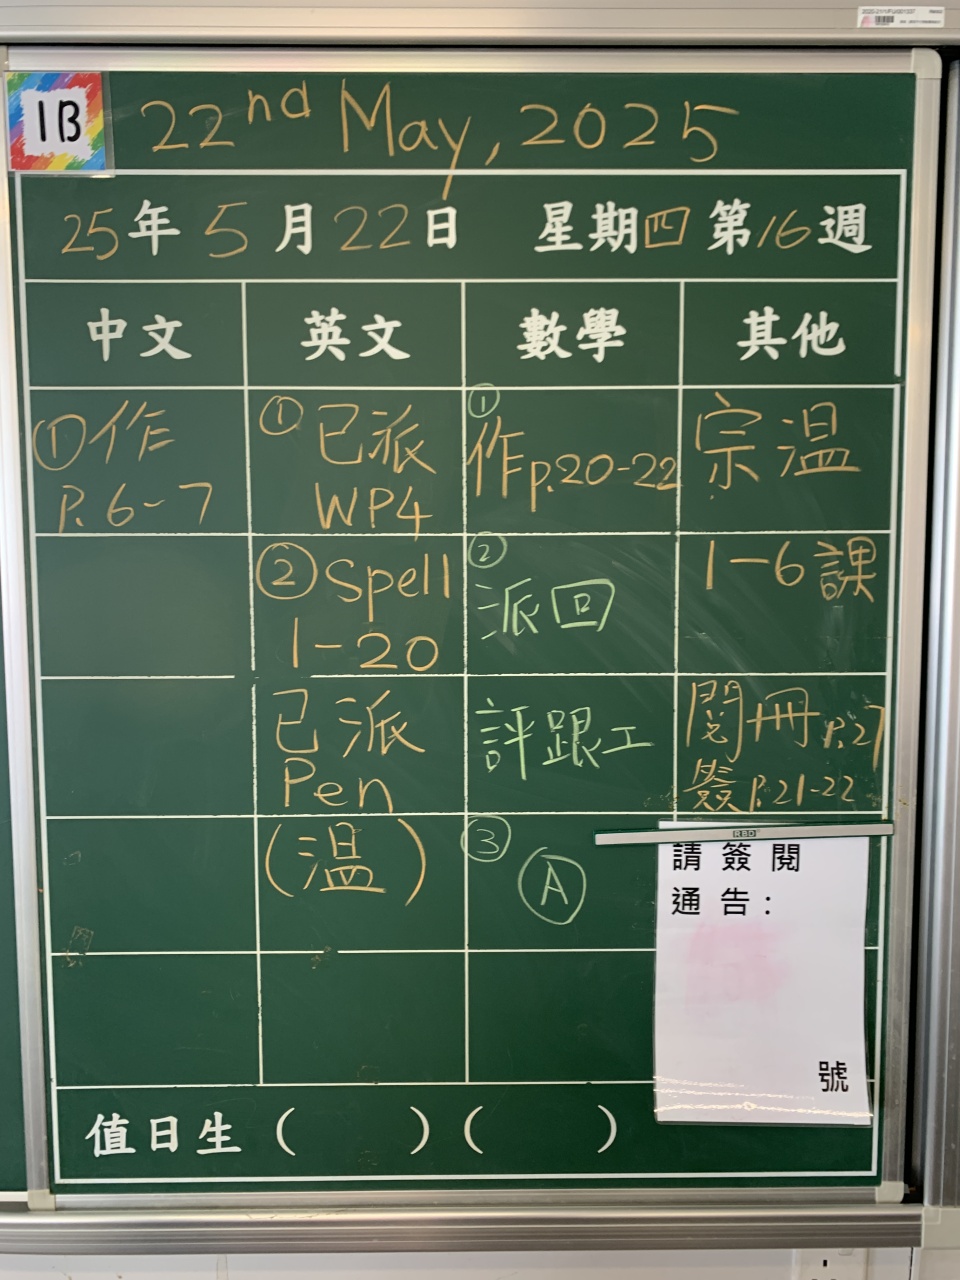 1B
22nd May, 2025
25年5月22日 星期四 第16週
中文 英文 數學 其他
①作
P.6-7
①已派
WP4
②Spell
1-20
已派
Pen
(溫)
①
作p.20-22
②
派回
評跟工
③
A
宗溫
1-6課
閱冊p.27
簽p.21-22
RBD
請簽閱
通告：
號
值日生（ ）（ ）